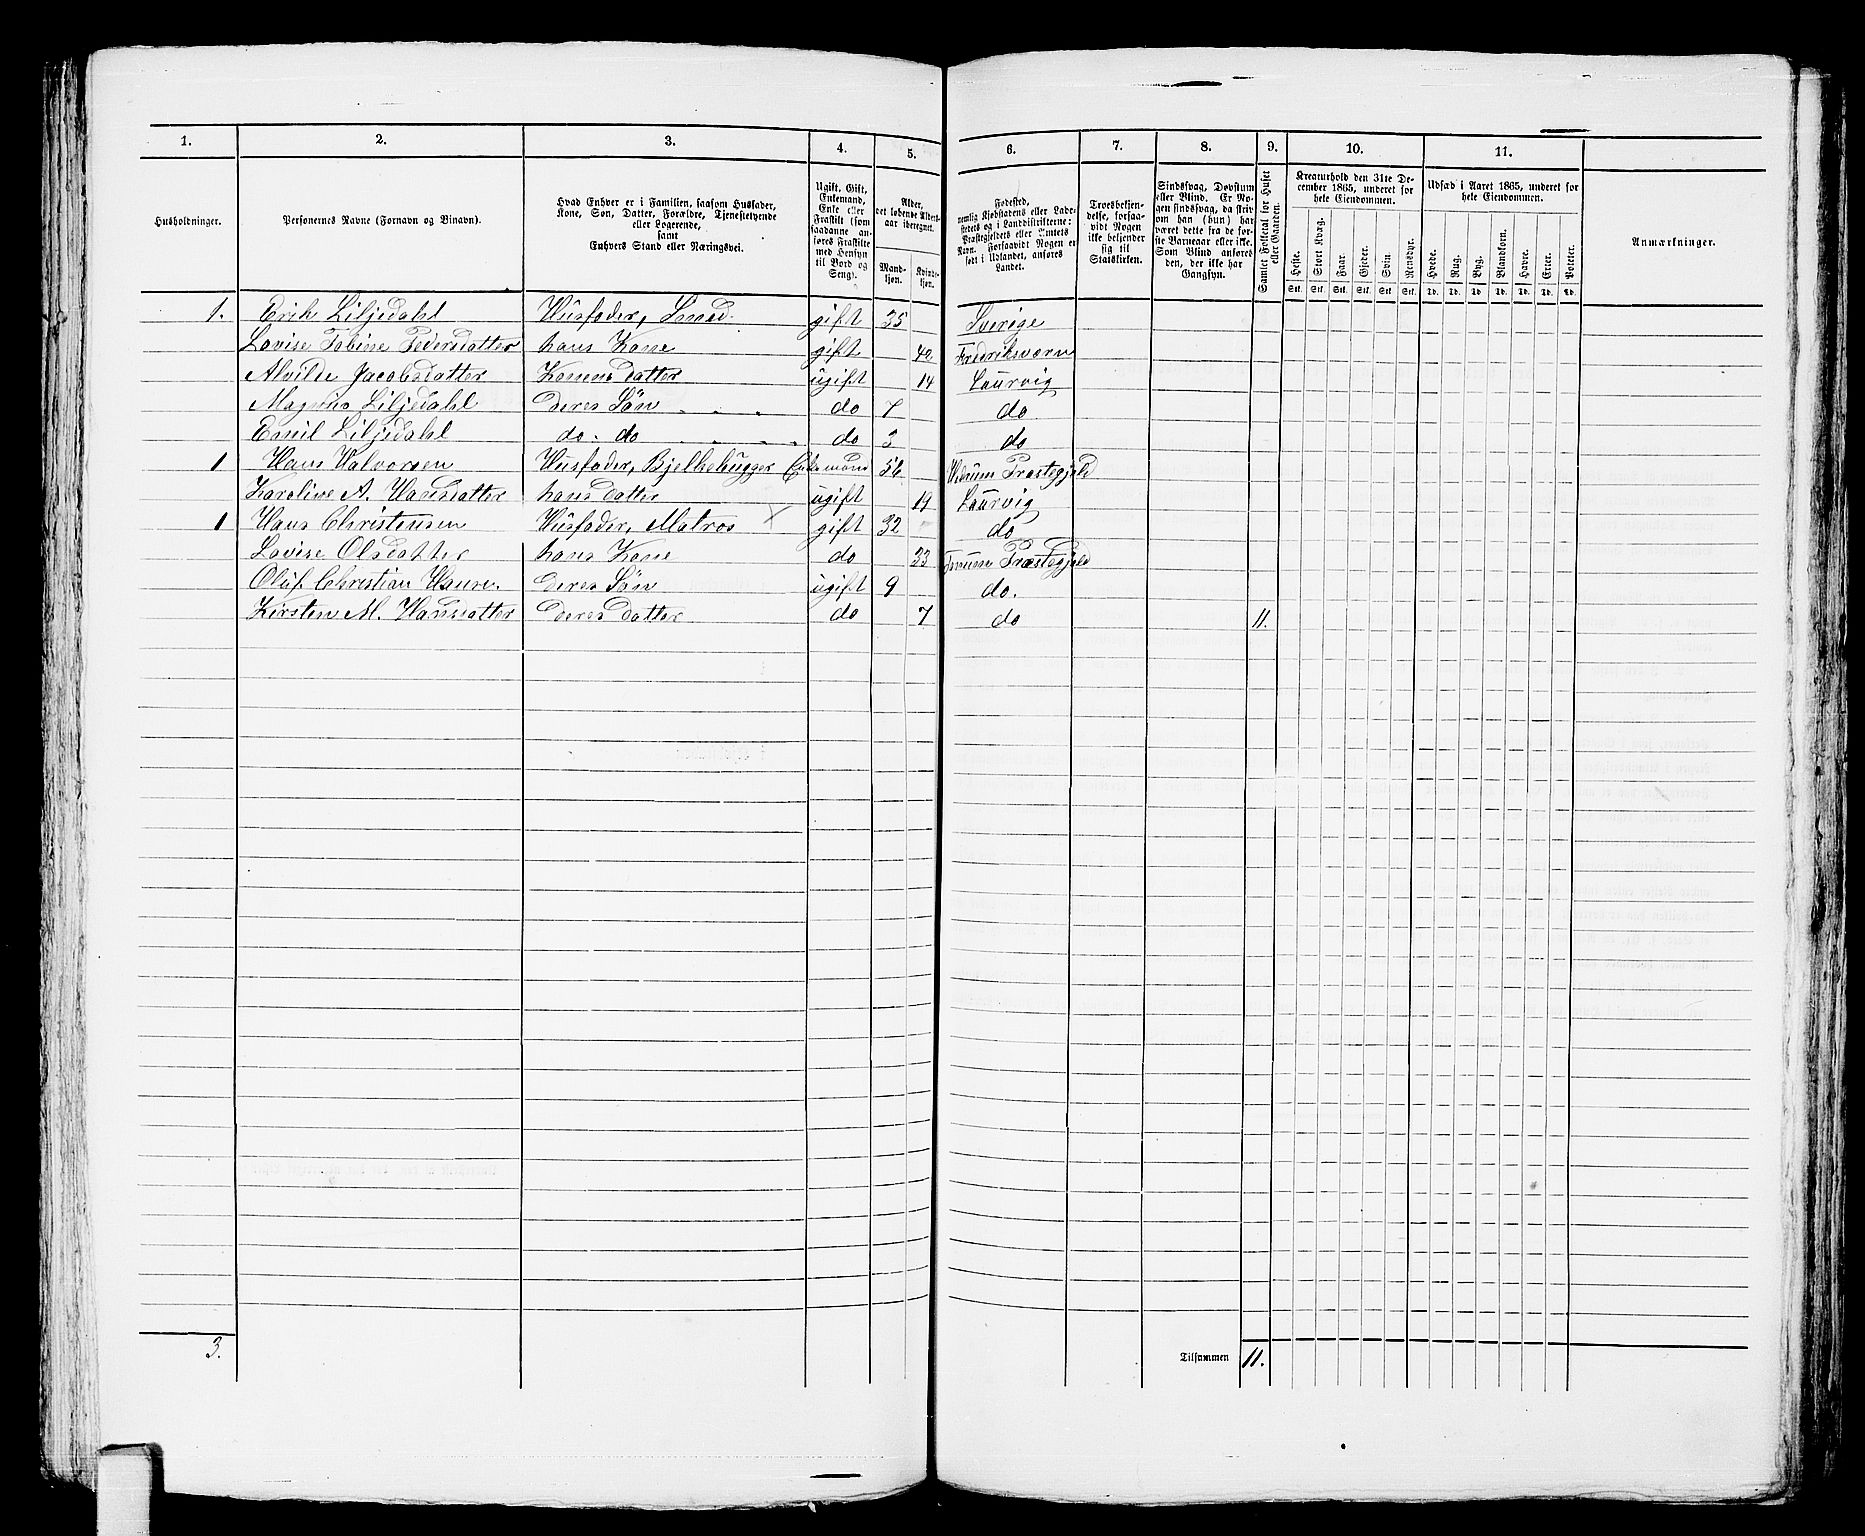 1. 2. 3. 4. 5. 6. 7. 8. 9. 10. 11.
Husholdninger.
Personernes Navne (Fornavn og Binavn).
Hvad Enhver er i Familien, saasom Husfader,
Kone, Søn, Datter, Forældre, Tjenestetyende
eller Logerende,
samt
Enhvers Stand eller Næringsvei.
Ugift, Gift,
Enkemand,
Enke eller
Fraskilt (som
saadanne an-
føres Fraskilte
med Hensyn
til Bord og
Seng).
Alder,
det løbende Alders-
aar iberegnet.
Mand-
kjøn.
Kvinde-
kjøn.
Fødested,
nemlig Kjøbstadens eller Lade-
stedets og i Landdistrikterne:
Præstegjeldets eller Amtets
Navn. Forsaavidt Nogen er
født i Udlandet, anføres
Landet.
Troesbekjen-
delse, forsaa-
vidt Nogen
ikke bekjender
sig til
Statskirken.
Sindssvag, Døvstum
eller Blind. Er No-
gen sindssvag, da skriv
om han (hun) har
været dette fra de før-
ste Barneaar eller ikke.
Som Blind anføres
den, der ikke har
Gangsyn.
Samlet Folketal for Huset
eller Gaarden.
Kreaturhold den 31te De-
cember 1865, underet for
hele Eiendommen.
Heste. Stort Kvæg. Faar. Gjeder. Svin. Rensdyr.
Stk. Stk. Stk. Stk. Stk. Stk.
Udsæd i Aaret 1865, underet for
hele Eiendommen.
Hvede. Rug. Byg. Blandkorn. Havre. Erter. Poteter.
Td. Td. Td. Td. Td. Td. Td.
Anmærkninger.
1. Erik Liljedahl Husfader, Smed. gift 35 Sverige
Lovise Tobine Pedersdatter hans Kone gift 42 Fredriksværn
Alvilde Jacobsdatter Konens Datter ugift 14 Laurvig
Magnus Liljedahl deres Søn do 7 do
Emil Liljedahl do. do do 3 do
1 Hans Halvorsen Husfader, Bjelkehugger Enkemand 56 Hedrum Præstegjeld
Karoline A. Hansdatter hans Datter ugift 19 Laurvig
1 Hans Christensen Husfader, Matros gift 32 do
Lovise Olsdatter hans Kone do 33 Præstegjeld
Oluf Christian Hansen deres Søn ugift 9 do.
Kirsten M. Hansdatter deres Datter do 7 do 11.
3. Tilsammen 11.